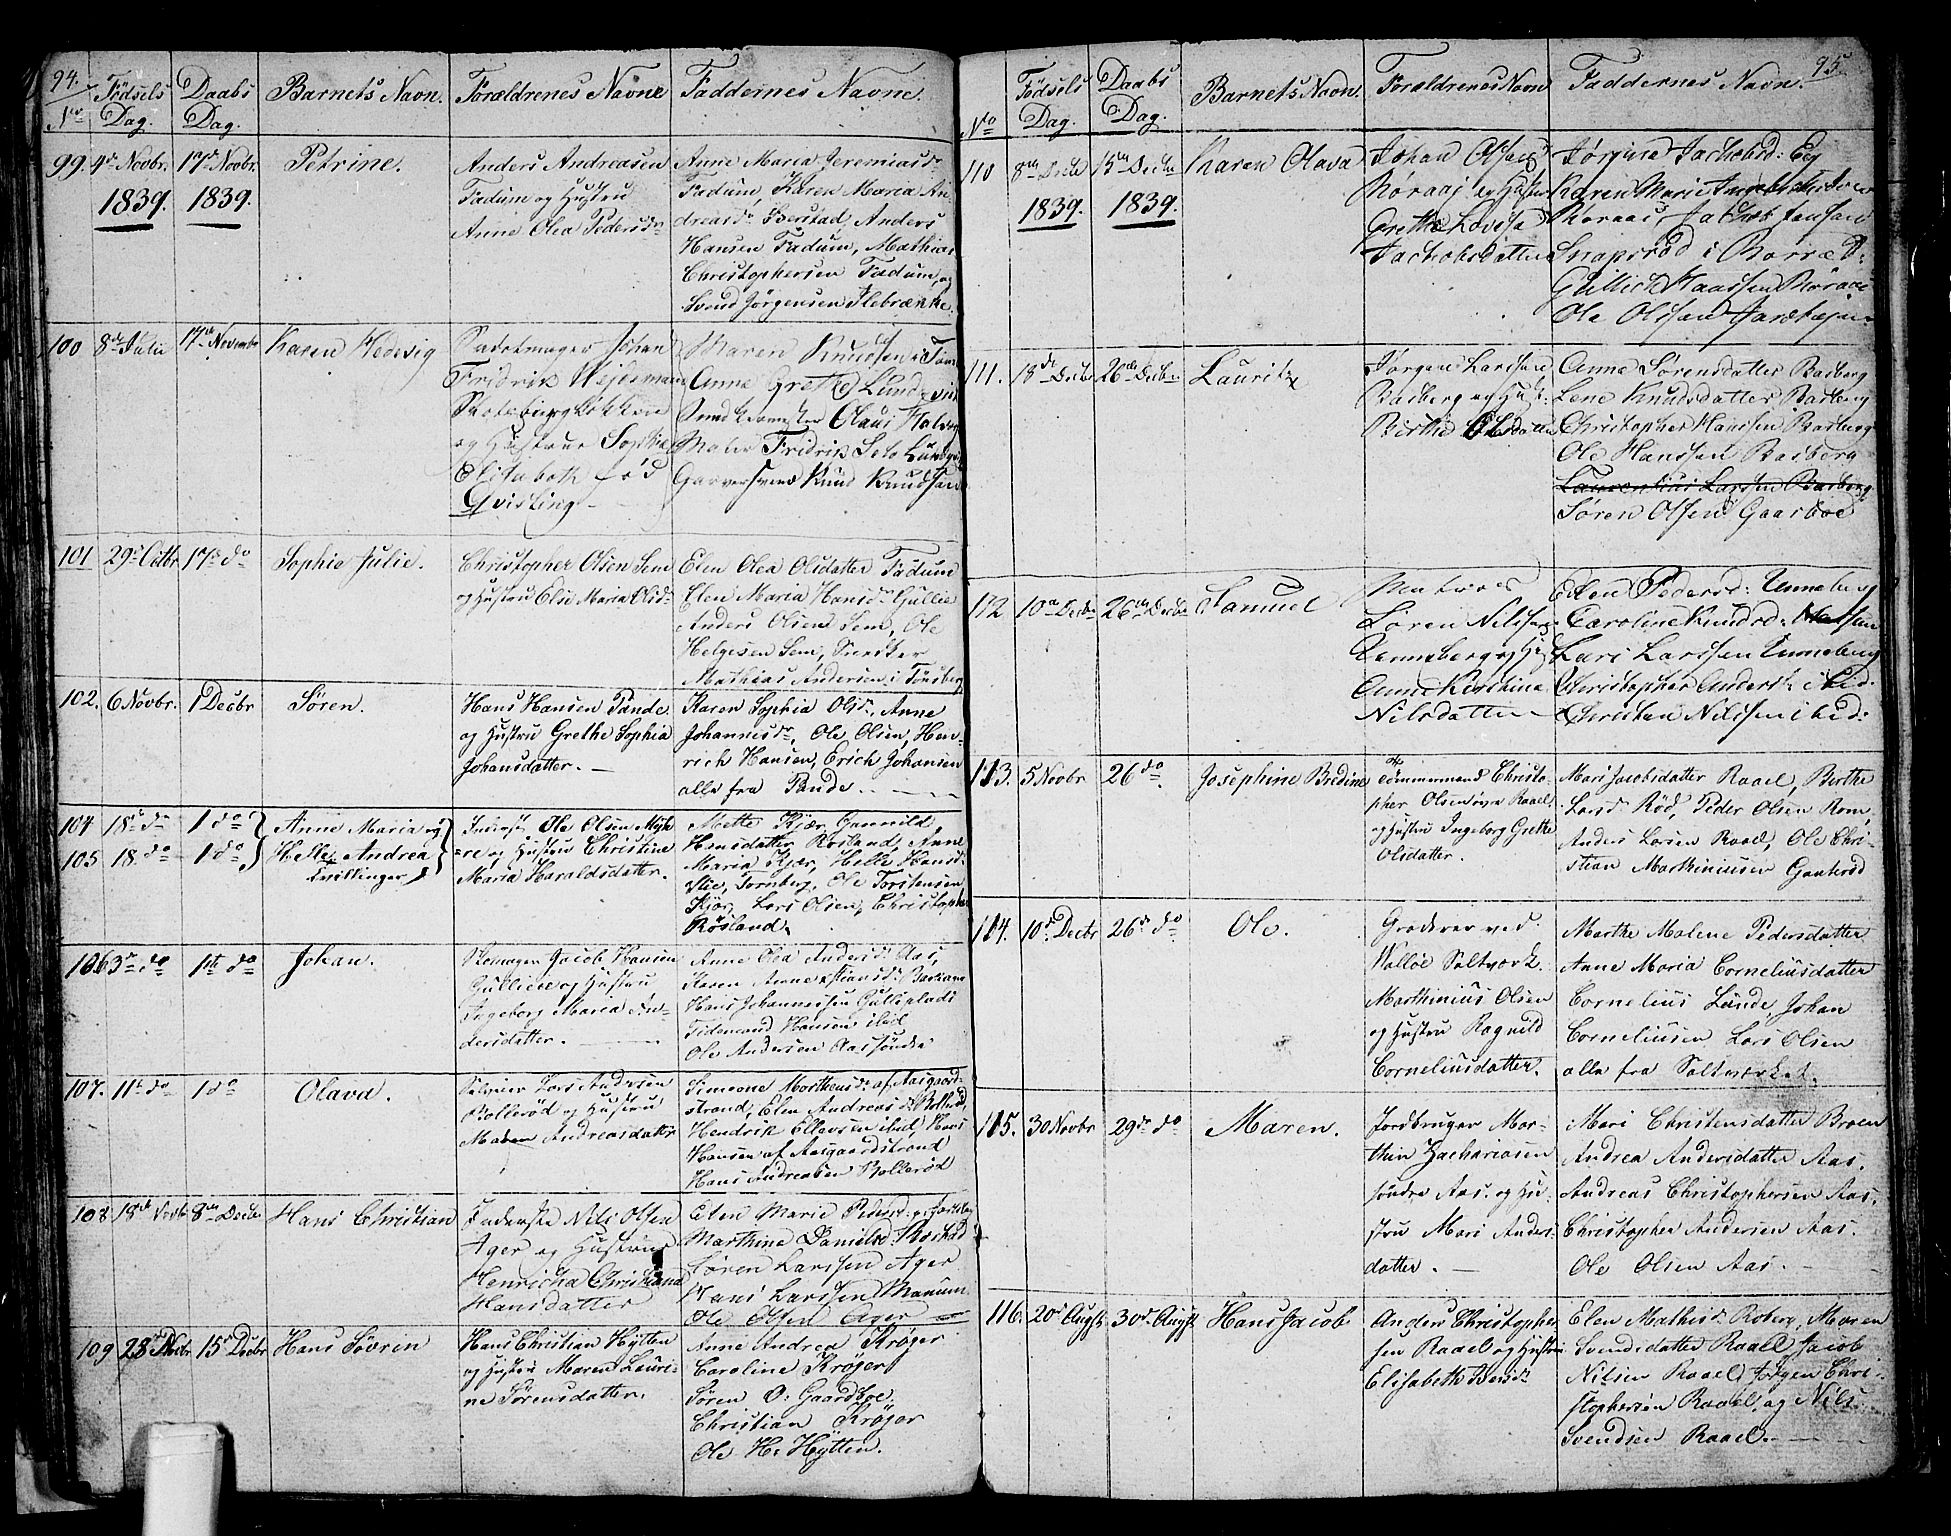 94.
No Födsels Dag. Daabs Dag. Barnets Navn. Forældrenes Navne Faddernes Navne.
99. 4d Novbr. 1839. 17d Novbr. 1839. Petrine.
Anders Andreasen
Fadum og Hustru
Anne Olea Pedersdr
Anne Maria Jeremiasdr
Fadum, Karen Maria An
dreasdr Berstad, Anders
Hansen Fadum, Mathias
Christophersen Fadum, og
Svend Jörgensen Ilebrække.
100 8de Juli 17de Novembr Karen Hedevig
Johan
Fridrik
og Hustrue Sophie
Elisabeth föd
Qvisling
Maren Knudsen
Anna Grethe Lund
Claus
Maler Fridrik
Garversvend Knud Knudsen
101 29d Octbr 17d do Sophie Julie.
Christopher Olsen Sem
og Hustru Else Maria Olsdr
Elen Olea Olsdatter Fadum
Elen Maria Hansdr Gullie
Anders Olsen Sem, Ole
Helgesen Sem, Snedker
Mathias Andersen i Tönsberg
102. 6 Novbr. 1 Decbr Sören.
Hans Hansen Pande
og Hustru Grethe Sophia
Johansdatter. —
Karen Sophia Olsdr, Anne
Johannesdr, Ole Olsen, Hen-
rich Hansen, Erich Johansen
alle fra Pande. —
104 18d do 1 do Anne Maria og
105 18. do 1 do Helle Andrea
Tvillinger
Inderst Ole Olsen Myh
re og Hustru Christine
Maria Haraldsdatter.
Mette Kjær, Gunnild
Hansdatter Rosland, Anne
Maria Kjær, Helle Hansdr
Stie, Tornberg, Ole Torstensen
Kjær, Lars Olsen, Christopher
Røsland.
106 3d do 1st do Johan.
Skomager Jacob Hansen
Gulliere og Hustru
Ingeborg Maria An-
dersdatter. —
Anne Olea Andersdr Aas,
Karen Anne
Hans Johannessen
Tidemand Hansen ibid
Ole Andersen Aassöndre
107. 11t do 1 do Olava.
Lars Andersen
Bollerød og Hustru
Maren Andreasdatter
Simeone Morthensdr af Aasgaard-
strand, Elen Andreasdr Bollerød,
Hendrik Ellevsen ibid, Hans
Hansen af Aasgaardstrand
Hans Andreassen Bollerød
108 18de Novbr 8de Decbr Hans Christian
Nils Olsen
Ager og Hustrue
Henricha Christiana
Hansdatter
Elen Marie Pedersd:
Marthine Danielsd:
Sören Larssen Ager
Hans Larssen
Ole Olsen Ager
109 28d Novbr. 15d Decbr Hans Sövrin
Hans Christian Hytten
og Hustru Maren Lauri-
ne Sörensdatter.
Anne Andrea Kröger
Caroline Kröger
Sören O. Gaardboe
Christian Kröger
Ole H. Hytten.
95
No Födsels Dag. Daabs Dag. Barnets Navn. Forældrenes Navn Faddernes Navn.
110 8de Decbr 1839. 15de Decbr 1839. Karen Olava
Johan Olsen
Röraas og Hustru
Grethe Lovisa
Jachobsdatter
Jörgine Jachobsd: Eg
Karen Marie
Röraas, Jachob Jensen
Snapsröd i Borre
Gullich Klaassen Röraas
Ole Olssen
111. 18de Decbr 26de Decbr Lauritz
Jörgen Larssen
Basberg og Hust:
Birthe Olsdatter
Anne Sörensdatter Basberg
Lene Knudsdatter Basberg
Christopher Hanssen Basberg
Ole Hanssen Basberg
Laurentius Larssen Basberg
Sören Olssen Gaarboe
112 10de Decbr 26de Decbr Samuel
Matros
Sören Nilssen
Unneberg og H:
Anne Kirstina
Nilsdatter
Ellen Pedersd: Unneberg
Caroline Knudsd:
Lars Larssen Unneberg
Christopher Anders: ibid.
Christen Nilssen ibid:
113. 5 Novbr 26 do Josephine Bredine
Tömmermand Christo-
pher Olsen övre Raael
og Hustru Ingeborg Grethe
Olsdatter.
Mari Jacobsdatter Raael, Berthe
Larsdr Röd, Peder Olsen Rom,
Anders Larsen Raael, Ole Chri-
stian Marthiniusen Gautersd
114. 10d Decbr 26d do Ole.
Graderer ved
Walløe Saltværk.
Marthinius Olsen
og Hustru Ragnild
Corneliusdatter.
Marthe Malene Pedersdatter
Anne Maria Corneliusdatter
Cornelius Lunde, Johan
Corneliusen Lars Olsen
alle fra Saltværket.
115. 30 Novbr 29de do Maren.
Jordbruger Mar-
thin Zachariasen
söndre Aas. og Hu-
stru Mari Anders-
datter. —
Mari Christensdatter Broen
Andrea Andersdatter Aas.
Andreas Christophersen Aas.
Christopher Andersen Aas.
Ole Olsen Aas. —
116. 20d Augst 30d Augst Hans Jacob
Anders Christopher
sen Raael og Hustru
Elisabeth Iversdr
Elen Mathisdr Roberg, Maren
Svendsdatter Raael Jacob
Nilsen Raael, Jörgen Chri-
stophersen Raael, og Nils
Svendsen Raael. —